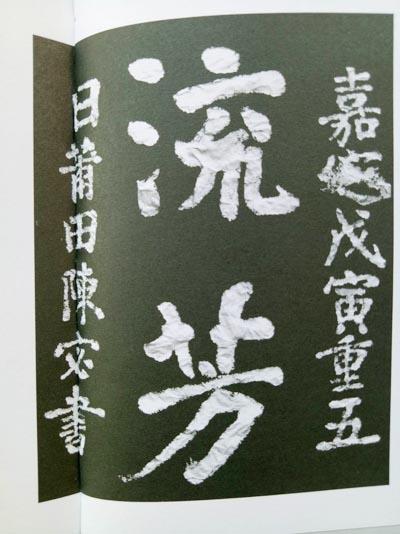 嘉定戊寅重五
流芳
日莆田陳宓書